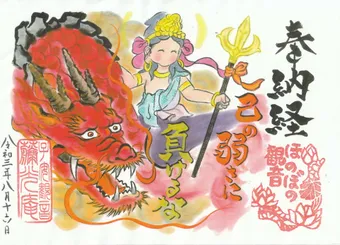 奉納経
ほのぼの
観音
己の弱さに
負けるな
令和三年八月十六日